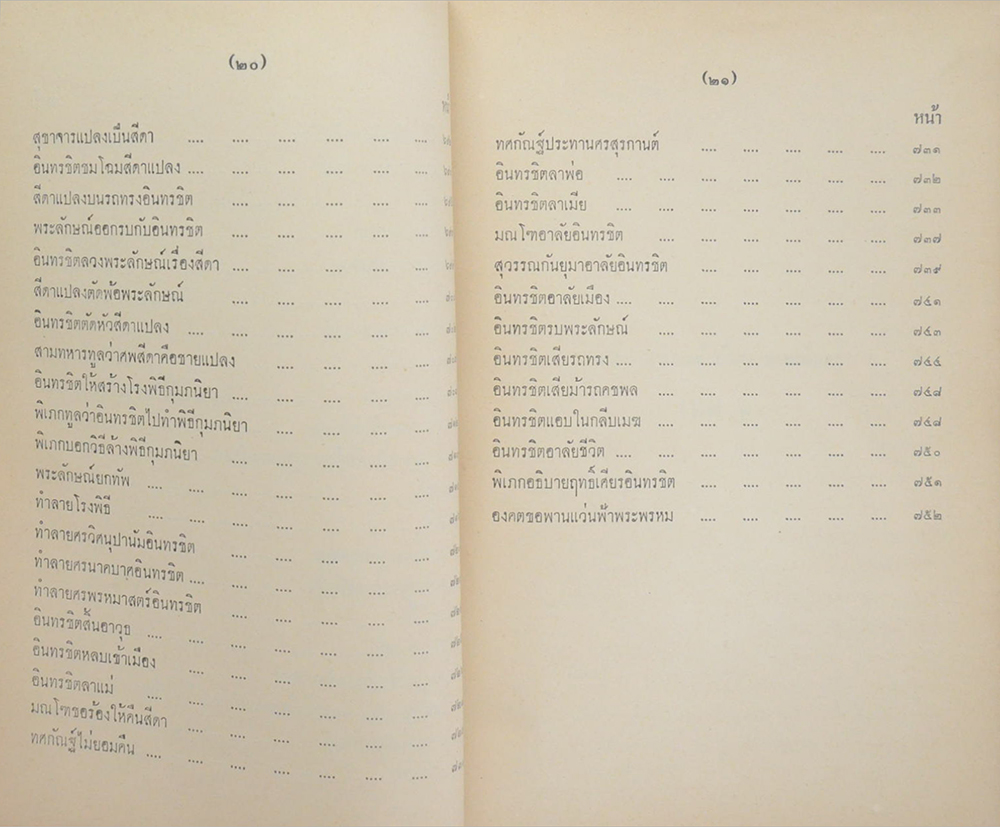 (๒๐)
สุขาจารแปลงเป็นสีดา .... .... .... .... .... ....
อินทรชิตชมโฉมสีดาแปลง .... .... .... .... .... ....
สีดาแปลงบนรถทรงอินทรชิต .... .... .... .... ....
พระลักษณ์ออกรบกับอินทรชิต .... .... .... .... ....
อินทรชิตลวงพระลักษณ์เรื่องสีดา .... .... .... .... ....
สีดาแปลงตัดพ้อพระลักษณ์ .... .... .... .... ....
อินทรชิตตัดหัวสีดาแปลง .... .... .... .... .... ....
สามทหารทูลว่าศพสีดาคือชายแปลง .... .... .... ....
อินทรชิตให้สร้างโรงพิธีกุมภนิยา .... .... .... .... ....
พิเภกทูลว่าอินทรชิตไปทำพิธีกุมภนิยา .... .... .... ....
พิเภกบอกวิธีล้างพิธีกุมภนิยา .... .... .... .... ....
พระลักษณ์ยกทัพ .... .... .... .... .... .... ....
ทำลายโรงพิธี .... .... .... .... .... .... ....
ทำลายศรวิศนุปานัมอินทรชิต .... .... .... .... ....
ทำลายศรนาคบาศอินทรชิต .... .... .... .... .... ....
ทำลายศรพรหมาสตร์อินทรชิต .... .... .... .... ....
อินทรชิตสิ้นอาวุธ .... .... .... .... .... .... ....
อินทรชิตหลบเข้าเมือง .... .... .... .... .... ....
อินทรชิตลาแม่ .... .... .... .... .... .... ....
มณโฑขอร้องให้คืนสีดา .... .... .... .... .... ....
ทศกัณฐ์ไม่ยอมคืน .... .... .... .... .... .... ....
(๒๑)
หน้า
ทศกัณฐ์ประทานศรสุรกานต์ .... .... .... .... .... ๗๓๑
อินทรชิตลาพ่อ .... .... .... .... .... .... .... ๗๓๒
อินทรชิตลาเมีย .... .... .... .... .... .... .... ๗๓๓
มณโฑอาลัยอินทรชิต .... .... .... .... .... .... ๗๓๗
สุวรรณกันยุมาอาลัยอินทรชิต .... .... .... .... .... ๗๓๙
อินทรชิตอาลัยเมือง .... .... .... .... .... .... .... ๗๔๑
อินทรชิตรบพระลักษณ์ .... .... .... .... .... .... ๗๔๓
อินทรชิตเสียรถทรง .... .... .... .... .... .... .... ๗๔๔
อินทรชิตเสียม้ารถคชพล .... .... .... .... .... .... ๗๔๘
อินทรชิตแอบในกลีบเมฆ .... .... .... .... .... .... ๗๔๘
อินทรชิตอาลัยชีวิต .... .... .... .... .... .... .... ๗๕๐
พิเภกอธิบายฤทธิ์เศียรอินทรชิต .... .... .... .... .... ๗๕๑
องคตขอพานแว่นฟ้าพระพรหม .... .... .... .... .... ๗๕๒